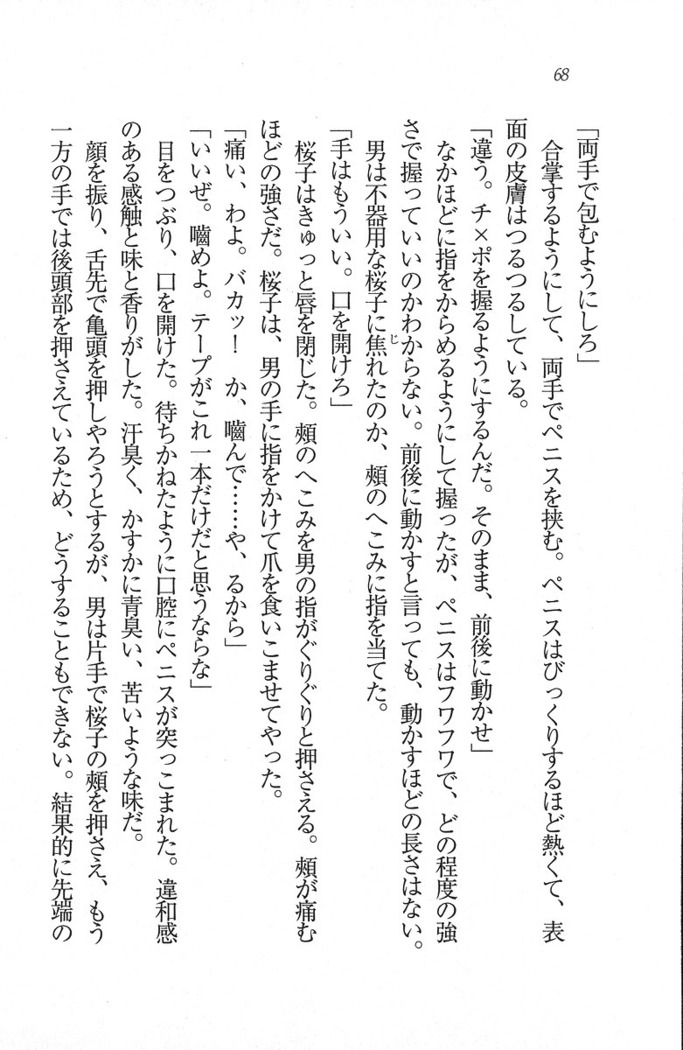 68
「両手で包むようにしろ」
　合掌するようにして、両手でペニスを挟む。ペニスはびっくりするほど熱くて、表
面の皮膚はつるつるしている。
「違う。チ×ポを握るようにするんだ。そのまま、前後に動かせ」
　なかほどに指をからめるようにして握ったが、ペニスはフワフワで、どの程度の強
さで握っていいのかわからない。前後に動かすと言っても、動かすほどの長さはない。
　男は不器用な桜子に焦れたのか、頰のへこみに指を当てた。
「手はもういい。口を開けろ」
　桜子はきゅっと唇を閉じた。頰のへこみを男の指がぐりぐりと押さえる。頰が痛む
ほどの強さだ。桜子は、男の手に指をかけて爪を食いこませてやった。
「痛い、わよ。バカッ！　か、嚙んで……や、るから」
「いいぜ。嚙めよ。テープがこれ一本だけだと思うならな」
　目をつぶり、口を開けた。待ちかねたように口腔にペニスが突っこまれた。違和感
のある感触と味と香りがした。汗臭く、かすかに青臭い、苦いような味だ。
　顔を振り、舌先で亀頭を押しやろうとするが、男は片手で桜子の頰を押さえ、もう
一方の手では後頭部を押さえているため、どうすることもできない。結果的に先端の